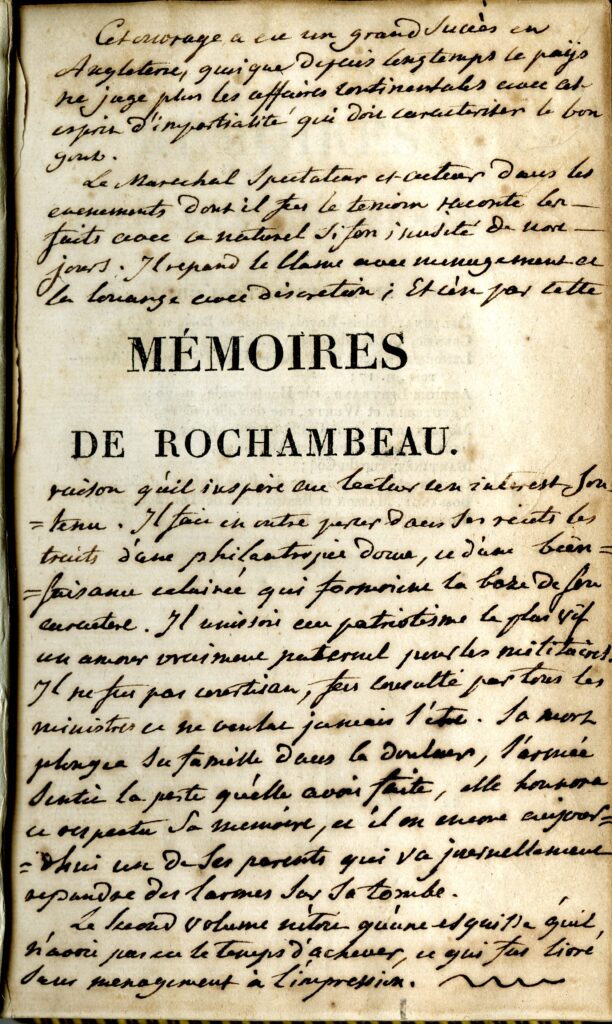 Cet ouvrage a eu un grand succès en
Angleterre, quoique depuis longtemps le pays
ne juge plus les affaires continentales avec cet
esprit d'impartialité qui doit caracteriser le bon
gout.
Le Marechal Spectateur et acteur dans les
evenements dont il fut le temoin raconte les
faits avec ce naturel si fort inusité de nos
jours. Il repand le blame avec menagement et
la louange avec discretion ; Et c'en par cette
MÉMOIRES
DE ROCHAMBEAU.
raison qu'il inspire au lecteur un interest sou
=tenu. Il fait en outre percer dans ses récits les
traits d'une philantropie douce, et d'une bien=
=faisance eclairée qui formoient la baze de son
caractere. Il unissoit au patriotisme le plus vif
un amour vraiment paternel pour les militaires.
Il ne fut pas courtisan, fut consulté par tous les
ministres et ne voulut jamais l'être. Sa mort
plongea sa famille dans la douleur, l'armée
sentit la perte qu'elle avoit faite, elle honnora
et respecta sa memoire, et il en encore aujour=
=dhui un de ses parents qui va journellement
repandre des larmes sur sa tombe.
Le second volume n'etoit qu'une esquisse qu'il
n'avoit pas eu le temps d'achever, et qui fut livré
sans menagement à l'impression.